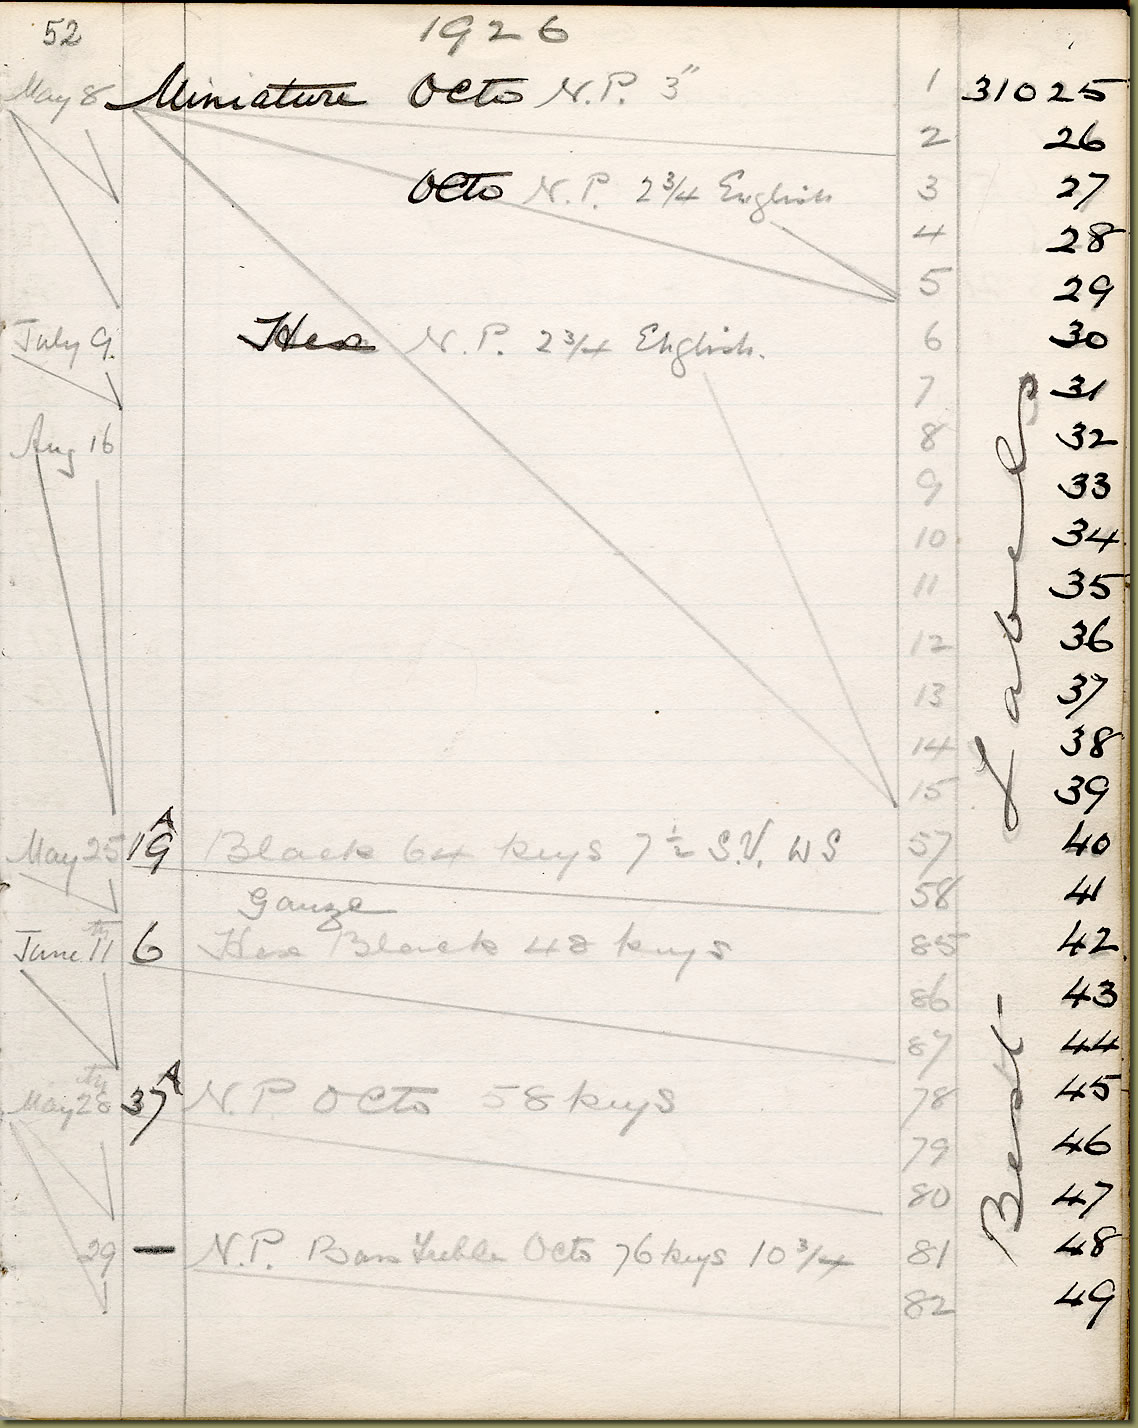 52 1926
May 8 Miniature Octo N.P. 3" 1 31025
2 26
Octo N.P. 2 3/4 English 3 27
4 28
5 29
July 9. Hex N.P. 2 3/4 English. 6 30
7 31
Aug 16 8 32
9 33
10 34
11 35
12 36
13 37
14 38
15 39
May 25 19A Black 64 keys 7 1/2 S.V. WS 57 40
Gauze 58 41
June 11th 6 Hex Black 48 keys 85 42
86 43
87 44
May 28th 37A N.P. Octo 58 keys 78 45
79 46
80 47
29 — N.P. Bass Treble Octo 76 keys 10 3/4 81 48
82 49
Best Labels